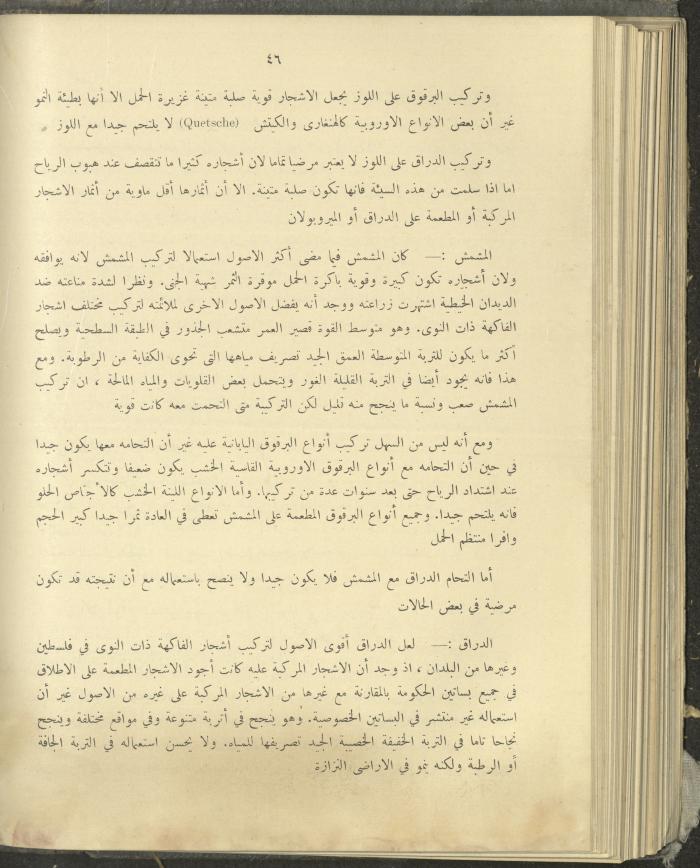 ٤٦
وتركيب البرقوق على اللوز يجعل الاشجار قوية صلبة متينة غزيرة الحمل الا أنها بطيئة النمو
غير أن بعض الانواع الاوروبية كالهنغارى والكيتش (Quetsche) لا يلتحم جيدا مع اللوز
وتركيب الدراق على اللوز لا يعتبر مرضيا تماما لان أشجاره كثيرا ما تنقصف عند هبوب الرياح
اما اذا سلمت من هذه السيئة فانها تكون صلبة متينة. الا أن أثمارها أقل ماوية من أثمار الاشجار
المركبة أو المطعمة على الدراق أو الميروبولان
المشمش :— كان المشمش فيما مضى أكثر الاصول استعمالا لتركيب المشمش لانه يوافقه
ولان أشجاره تكون كبيرة وقوية باكرة الحمل موقرة الثمر شهية الجنى. ونظرا لشدة مناعته ضد
الديدان الخيطية اشتهرت زراعته ووجد أنه يفضل الاصول الاخرى لملائمته لتركيب مختلف اشجار
الفاكهة ذات النوى. وهو متوسط القوة قصير العمر متشعب الجذور في الطبقة السطحية ويصلح
أكثر ما يكون للتربة المتوسطة العمق الجيد تصريف مياهها التى تحوى الكفاية من الرطوبة. ومع
هذا فانه يجود أيضا في التربة القليلة الغور ويتحمل بعض القلويات والمياه المالحة ، ان تركيب
المشمش صعب ونسبة ما ينجح منه قليل لكن التركيبة متى التحمت معه كانت قوية
ومع أنه ليس من السهل تركيب أنواع البرقوق اليابانية عليه غير أن التحامه معها يكون جيدا
في حين أن التحامه مع أنواع البرقوق الاوروبية القاسية الخشب يكون ضعيفا وتتكسر أشجاره
عند اشتداد الرياح حتى بعد سنوات عدة من تركيبها. وأما الانواع اللينة الخشب كالأجاص الحلو
فانه يلتحم جيدا. وجميع أنواع البرقوق المطعمة على المشمش تعطى في العادة ثمرا جيدا كبير الحجم
وافرا منتظم الحمل
أما التحام الدراق مع المشمش فلا يكون جيدا ولا ينصح باستعماله مع أن نتيجته قد تكون
مرضية في بعض الحالات
الدراق :— لعل الدراق أقوى الاصول لتركيب أشجار الفاكهة ذات النوى في فلسطين
وغيرها من البلدان ، اذ وجد أن الاشجار المركبة عليه كانت أجود الاشجار المطعمة على الاطلاق
في جميع بساتين الحكومة بالمقارنة مع غيرها من الاشجار المركبة على غيره من الاصول غير أن
استعماله غير منتشر في البساتين الخصوصية. وهو ينجح في أتربة متنوعة وفي مواقع مختلفة وينجح
نجاحا تاما في التربة الخفيفة الخصبة الجيد تصريفها للمياه. ولا يحسن استعماله في التربة الجافة
أو الرطبة ولكنه ينمو في الاراضى النزازة